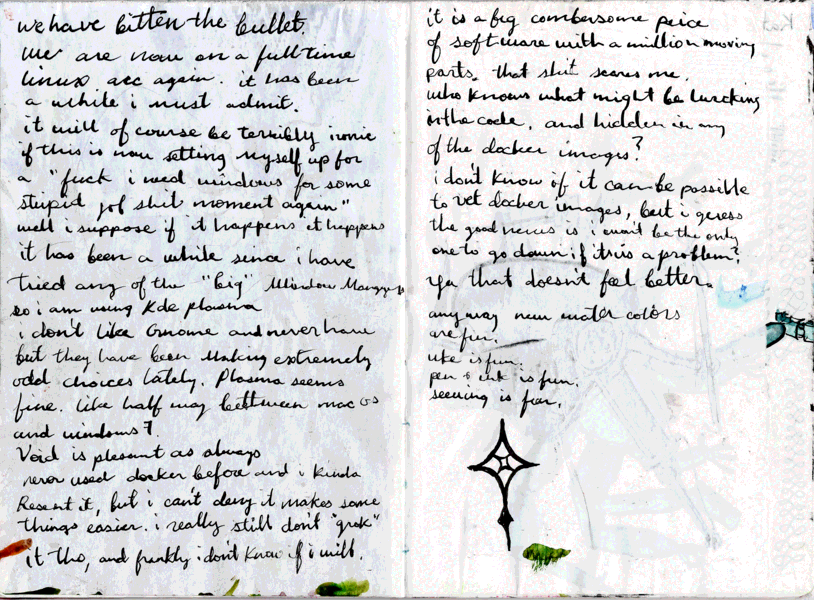 we have bitten the bullet.
we are now on a full time
linux arc again. it has been
a while i must admit.
it will of course be terribly ironic
if this is now setting myself up for
a "fuck i need windows for some
stupid job shit moment again"
well i suppose if it happens it happens
it has been a while since i have
tried any of the "big" Window Manager
so i am using Kde plasma
i don't like Gnome and never have
but they have been making extremely
odd choices lately. Plasma seems
fine. like half way bettween mac os
and windows 7.
Void is plesent as always
never used docker before and i kinda
Resent it, but i can't deny it makes some
things easier. i really still don't "grok"
it tho, and frankly i don't know if i will.
it is a big combersome peice
of software with a million moving
parts. that shit scares me.
who knows what might be lurcking
in the code, and hidden in any
of the docker images?
i don't know if it can be possible
to vet docker images, but i guess
the good news is i won't be the only
one to go down if it is a problem?
ya that doesn't feel better.
any way new water colors
are fun.
uke is fun.
pen & ink is fun.
sewing is fun.